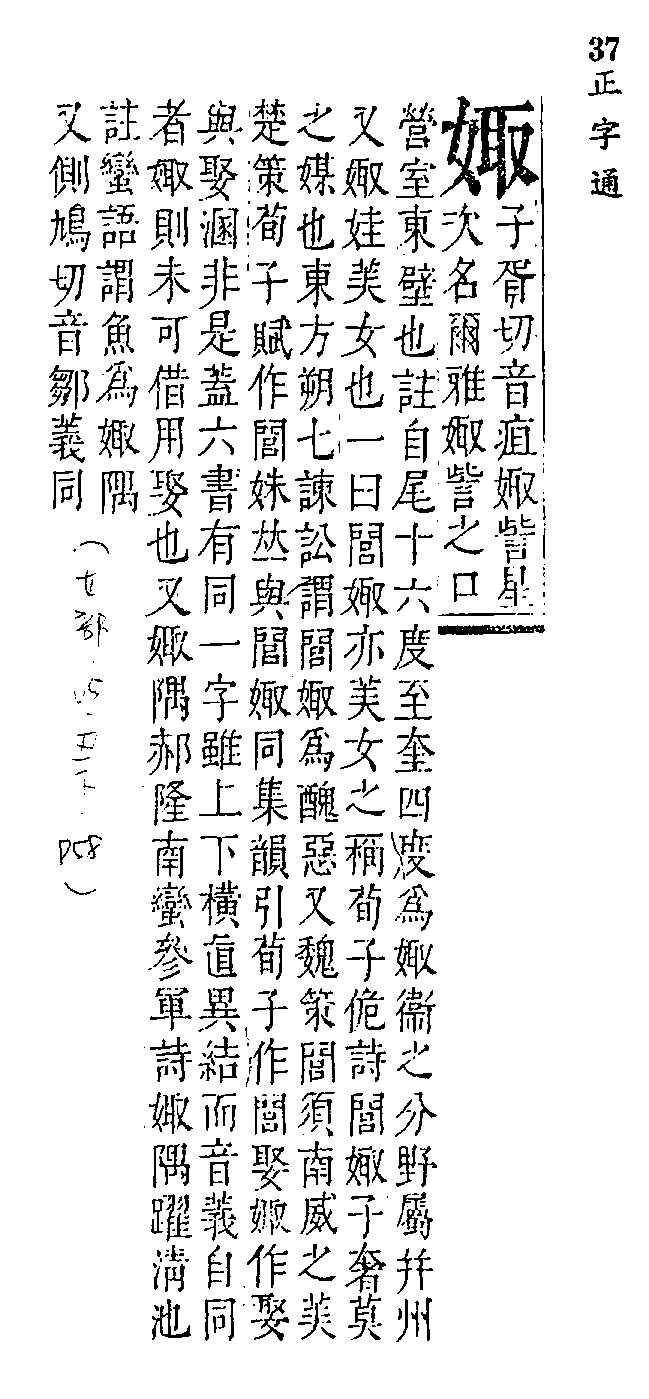 37正字通
娵
子胥切音疽娵訾星
次名爾雅娵訾之口
營室東壁也註自尾十六度至奎四度爲娵衞之分野屬幷州
又娵娃美女也一曰閭娵亦美女之稱荀子佹詩閭娵子奢莫
之媒也東方朔七諫訟謂閭娵爲醜惡又魏策閭須南威之美
楚策荀子賦作閭姝𠀤與閭娵同集韻引荀子作閭娶娵作娶
與娶溷非是蓋六書有同一字雖上下橫直異結而音義自同
者娵則未可借用娶也又娵隅郝隆南蠻參軍詩娵隅躍淸池
註蠻語謂魚爲娵隅
又側鳩切音鄒義同
(女部.V5.丑下.P58)